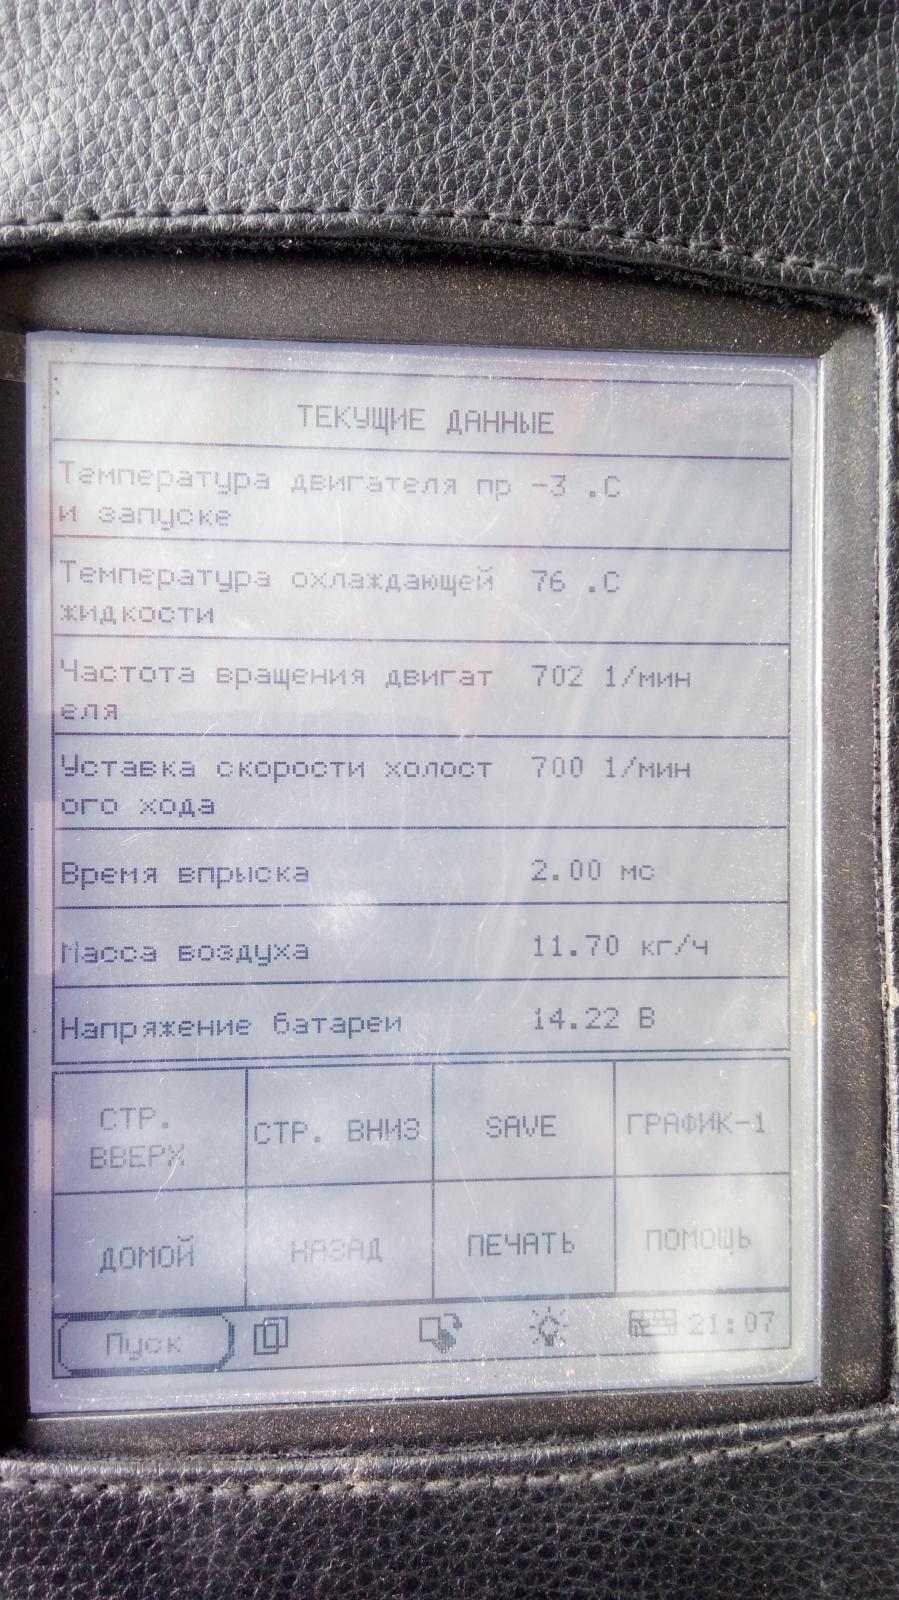 ТЕКУЩИЕ ДАННЫЕ
Температура двигателя пр -3 .C
и запуске
Температура охлаждающей 76 .C
жидкости
Частота вращения двигат 702 1/мин
еля
Уставка скорости холост 700 1/мин
ого хода
Время впрыска 2.00 мс
Масса воздуха 11.70 кг/ч
Напряжение батареи 14.22 В
СТР. ВВЕРХ
СТР. ВНИЗ
SAVE
ГРАФИК-1
ДОМОЙ
НАЗАД
ПЕЧАТЬ
ПОМОЩЬ
Пуск
21:07